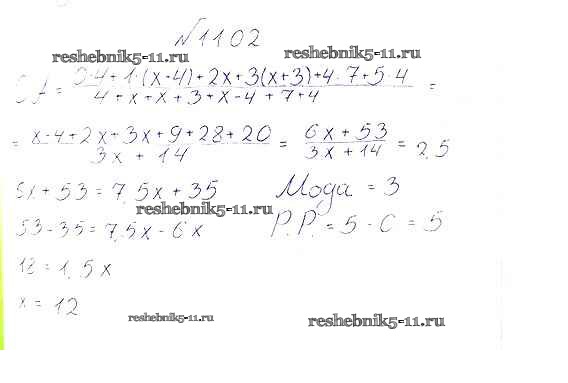 №1102
reshebnik5-11.ru
reshebnik5-11.ru
CA = 0·4+1·(x-4)+2x+3(x+3)+4·7+5·4 / 4+x+x+3+x-4+7+4 =
= x-4+2x+3x+9+28+20 / 3x+14 = 6x+53 / 3x+14 = 2,5
6x+53=7,5x+35
Мода = 3
reshebnik5-11.ru
53-35=7,5x-6x
Р.Р.=5-0=5
18=1,5x
x=12
reshebnik5-11.ru
reshebnik5-11.ru